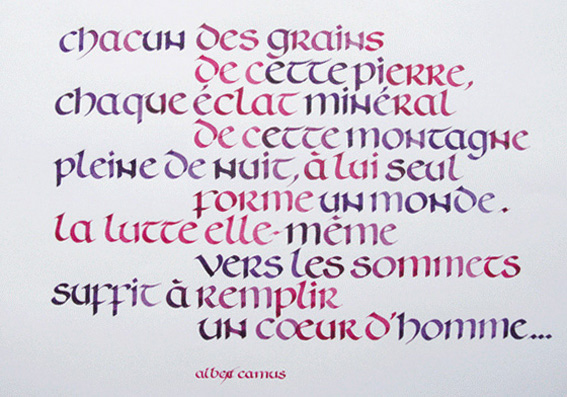 chacun des grains
de cette pierre,
chaque éclat minéral
de cette montagne
pleine de nuit, à lui seul
forme un monde.
la lutte elle-même
vers les sommets
suffit à remplir
un cœur d'homme...
albert camus